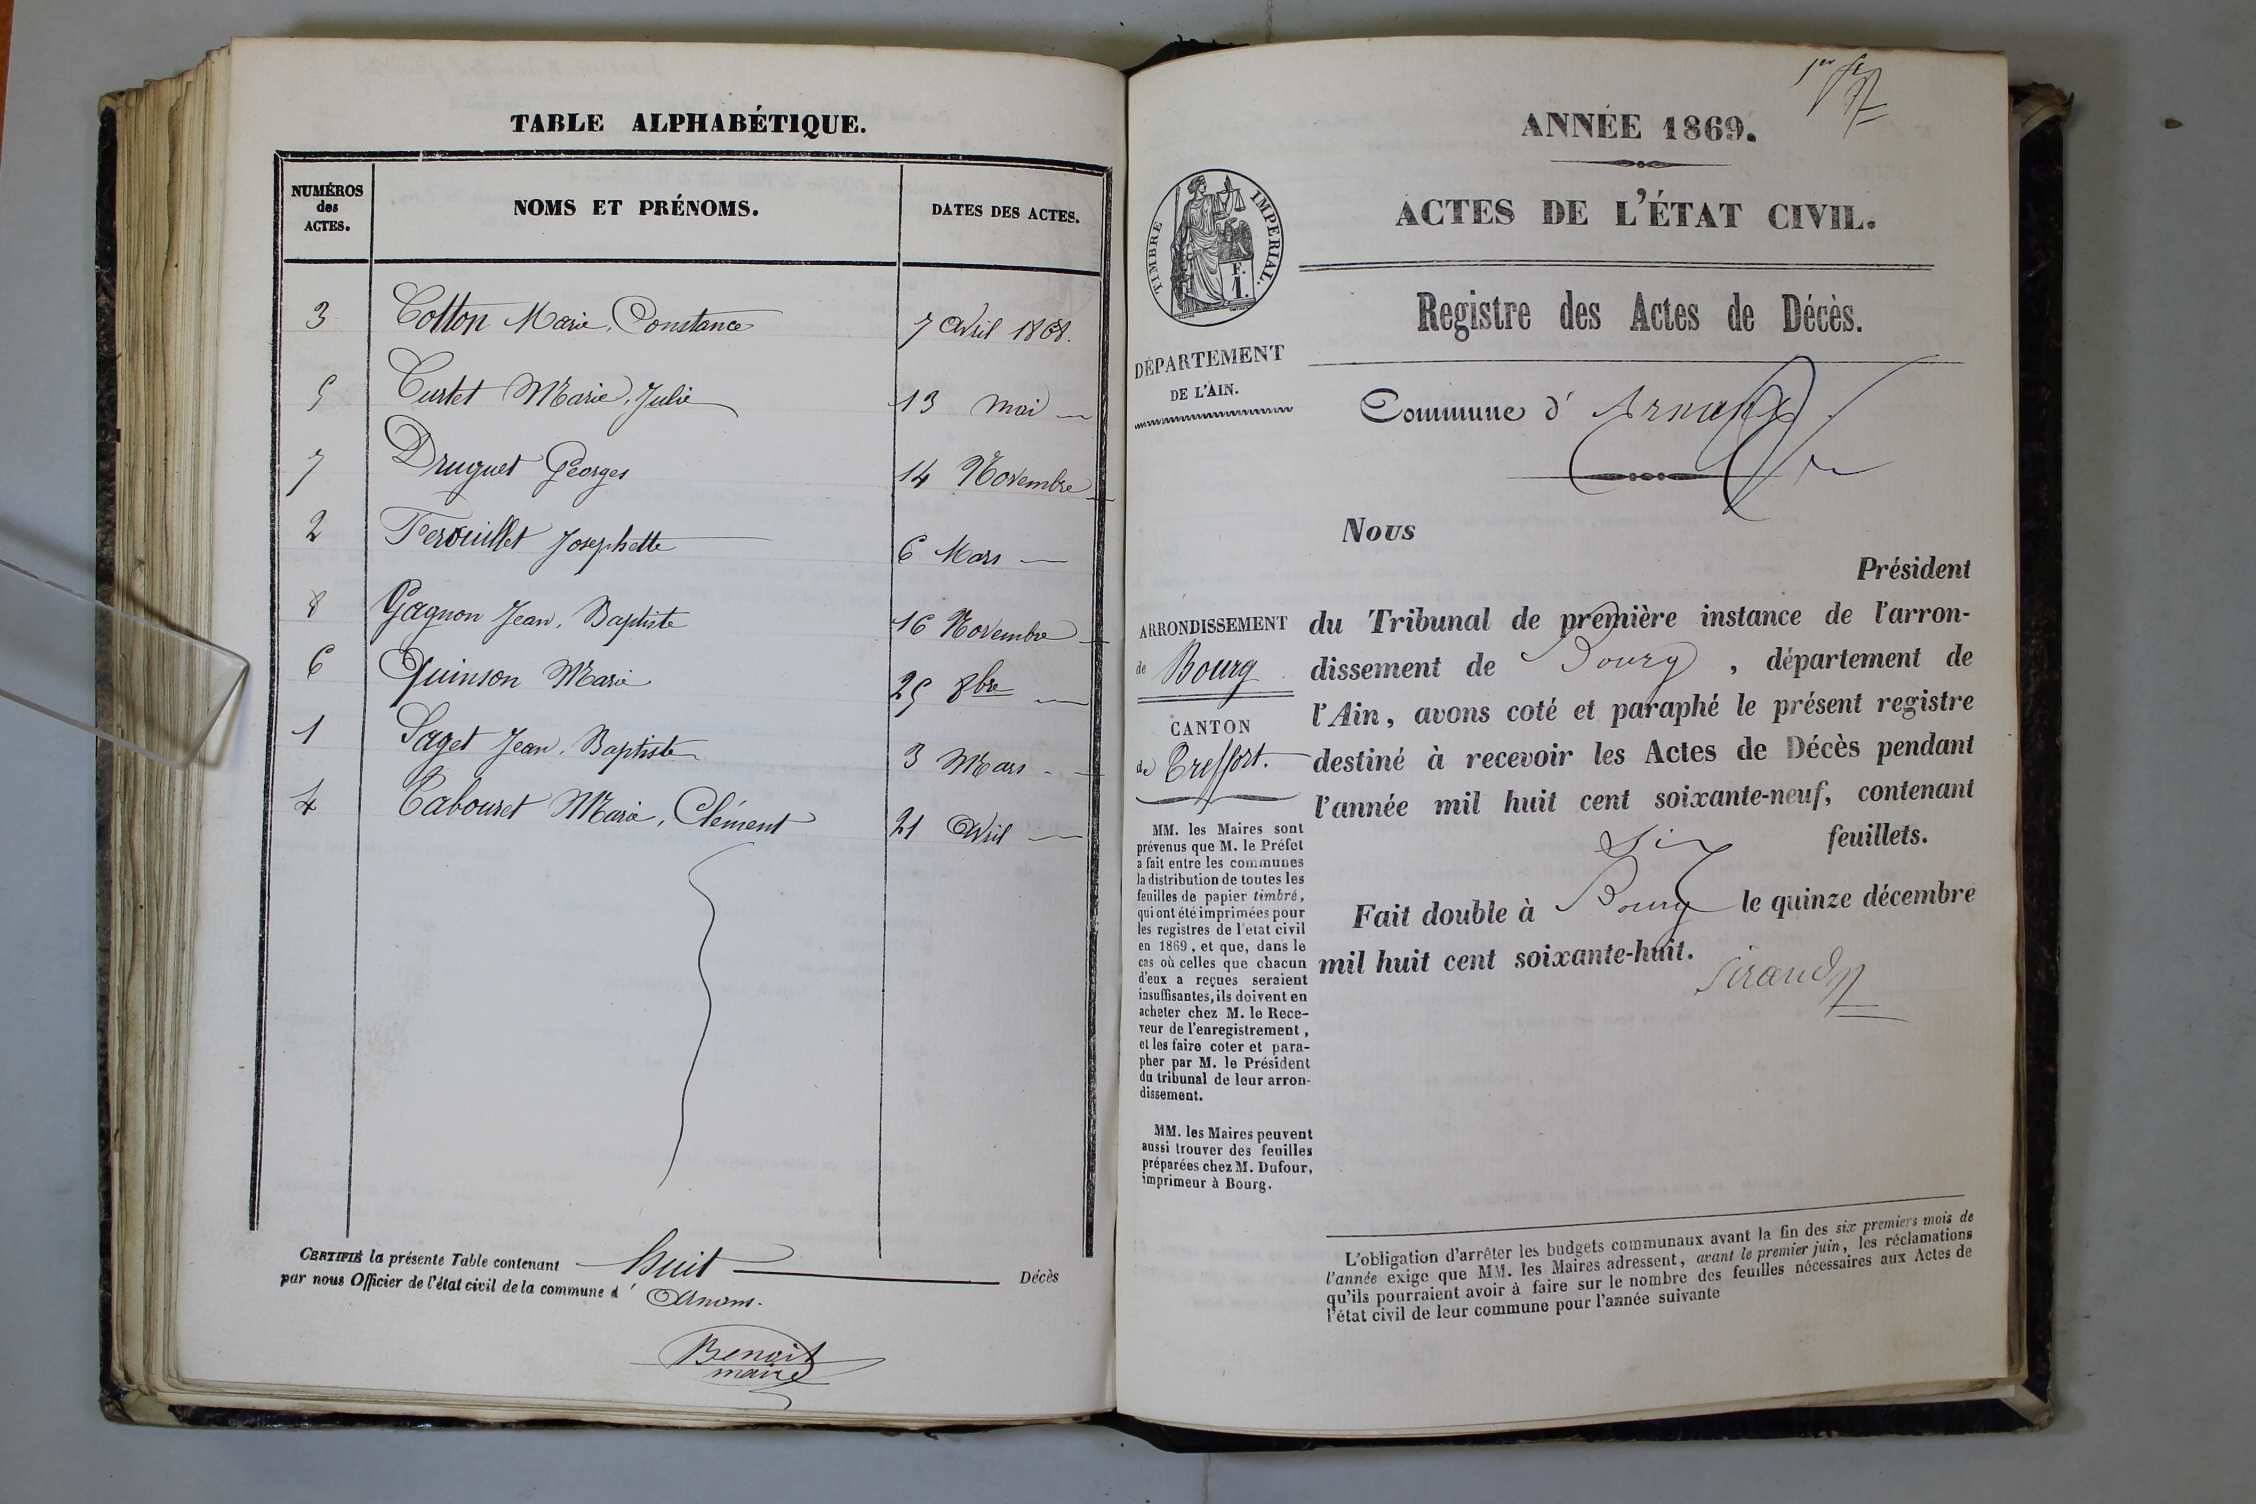 TABLE ALPHABÉTIQUE.
NUMÉROS des ACTES.
NOMS ET PRÉNOMS.
DATES DES ACTES.
3 Cotton Marie, Constance 7 Avril 1868.
5 Curtet Marie, Julie 13 mai —
7 Druguet Georges 14 Novembre —
2 Ferouillet Josephette 6 Mars —
8 Gagnon Jean, Baptiste 16 Novembre —
6 Quinson Marie 25 8bre —
1 Saget Jean, Baptiste 3 Mars —
4 Tabouret Marie, Clément 21 Avril —
CERTIFIÉ la présente Table contenant Huit Décès
par nous Officier de l'état civil de la commune d' Arnans.
Benoit
maire
1er
ANNÉE 1869.
ACTES DE L'ÉTAT CIVIL.
TIMBRE IMPERIAL.
F.
1.
Registre des Actes de Décès.
DÉPARTEMENT
DE L'AIN.
Commune d' Arnans
Nous
Président
du Tribunal de première instance de l'arron-
dissement de Bourg, département de
l'Ain, avons coté et paraphé le présent registre
destiné à recevoir les Actes de Décès pendant
l'année mil huit cent soixante-neuf, contenant
Six feuillets.
Fait double à Bourg le quinze décembre
mil huit cent soixante-huit.
ARRONDISSEMENT
de Bourg
CANTON
de Treffort.
MM. les Maires sont
prévenus que M. le Préfet
a fait entre les communes
la distribution de toutes les
feuilles de papier timbré,
qui ont été imprimées pour
les registres de l'état civil
en 1869, et que, dans le
cas où celles que chacun
d'eux a reçues seraient
insuffisantes, ils doivent en
acheter chez M. le Rece-
veur de l'enregistrement,
et les faire coter et para-
pher par M. le Président
du tribunal de leur arron-
dissement.
MM. les Maires peuvent
aussi trouver des feuilles
préparées chez M. Dufour,
imprimeur à Bourg.
L'obligation d'arrêter les budgets communaux avant la fin des six premiers mois de
l'année exige que MM. les Maires adressent, avant le premier juin, les réclamations
qu'ils pourraient avoir à faire sur le nombre des feuilles nécessaires aux Actes de
l'état civil de leur commune pour l'année suivante